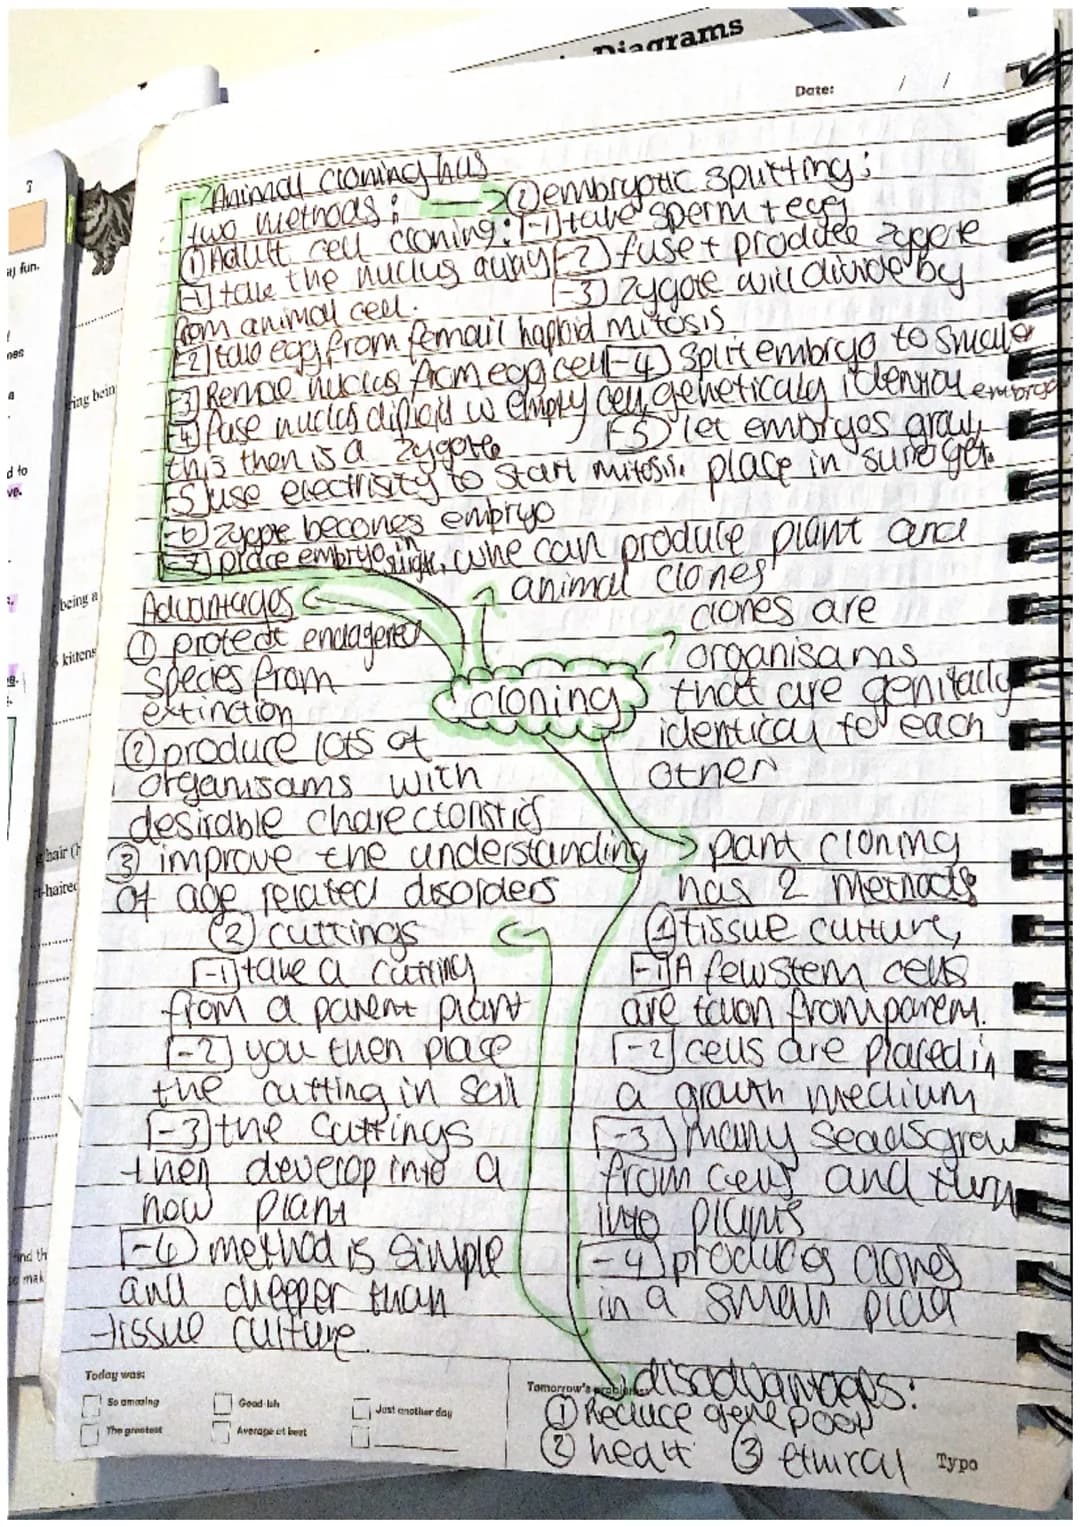 Diagrams
Date: / /
Animal cloning has
two methods:
① Adult cell cloning:
[-1] take the nucleus away
from animal cell.
[-2] take egg from femail haploid
[-3] Remove nucleus from egg cell
[-4] fuse nucleus diploid w empty cell
this then is a zygote
[-5] use electrisity to start mitosis.
[-6] zygote becomes embryo
[-7] place embryo in
② embryotic splitting:
[-1] take sperm + egg
[-2] fuse + produce zygote
[-3] zygote will divide by
mitosis
[-4] Split embryo to smaller
genetically identical embryo
[-5] let embryos grow,
place in surrogat.
can produce plant and
animal clones
cloning
clones are
organisams
that are genitacly
identical to each
other
Advantages
① protect endagered
species from
extinction
② produce lots of
organisams with
desirable charecteristics
③ improve the understanding
of age related disorders
plant cloning
has 2 methods
① tissue culture,
[-1] A few stem cells
are taken from parent.
[-2] cells are placed in
a growth medium
[-3] many seads grow
from cells and turn
into plants
[-4] produces clones
in a small place
② cuttings
[-1] take a cutting
from a parent plant
[-2] you then place
the cutting in soil
[-3] the cuttings
then develop into a
new plant
[-4] method is simple
and cheeper than
tissue culture.
disadvantages:
① Reduce gene pool
② healt ③ ethical
Today was:
So amazing
Good-ish
Just another day
The greatest
Average at best
Tomorrow's problems:
Typo
?
fun.
ring bein
being a
kittens
hair
t-haired
d to
ve.